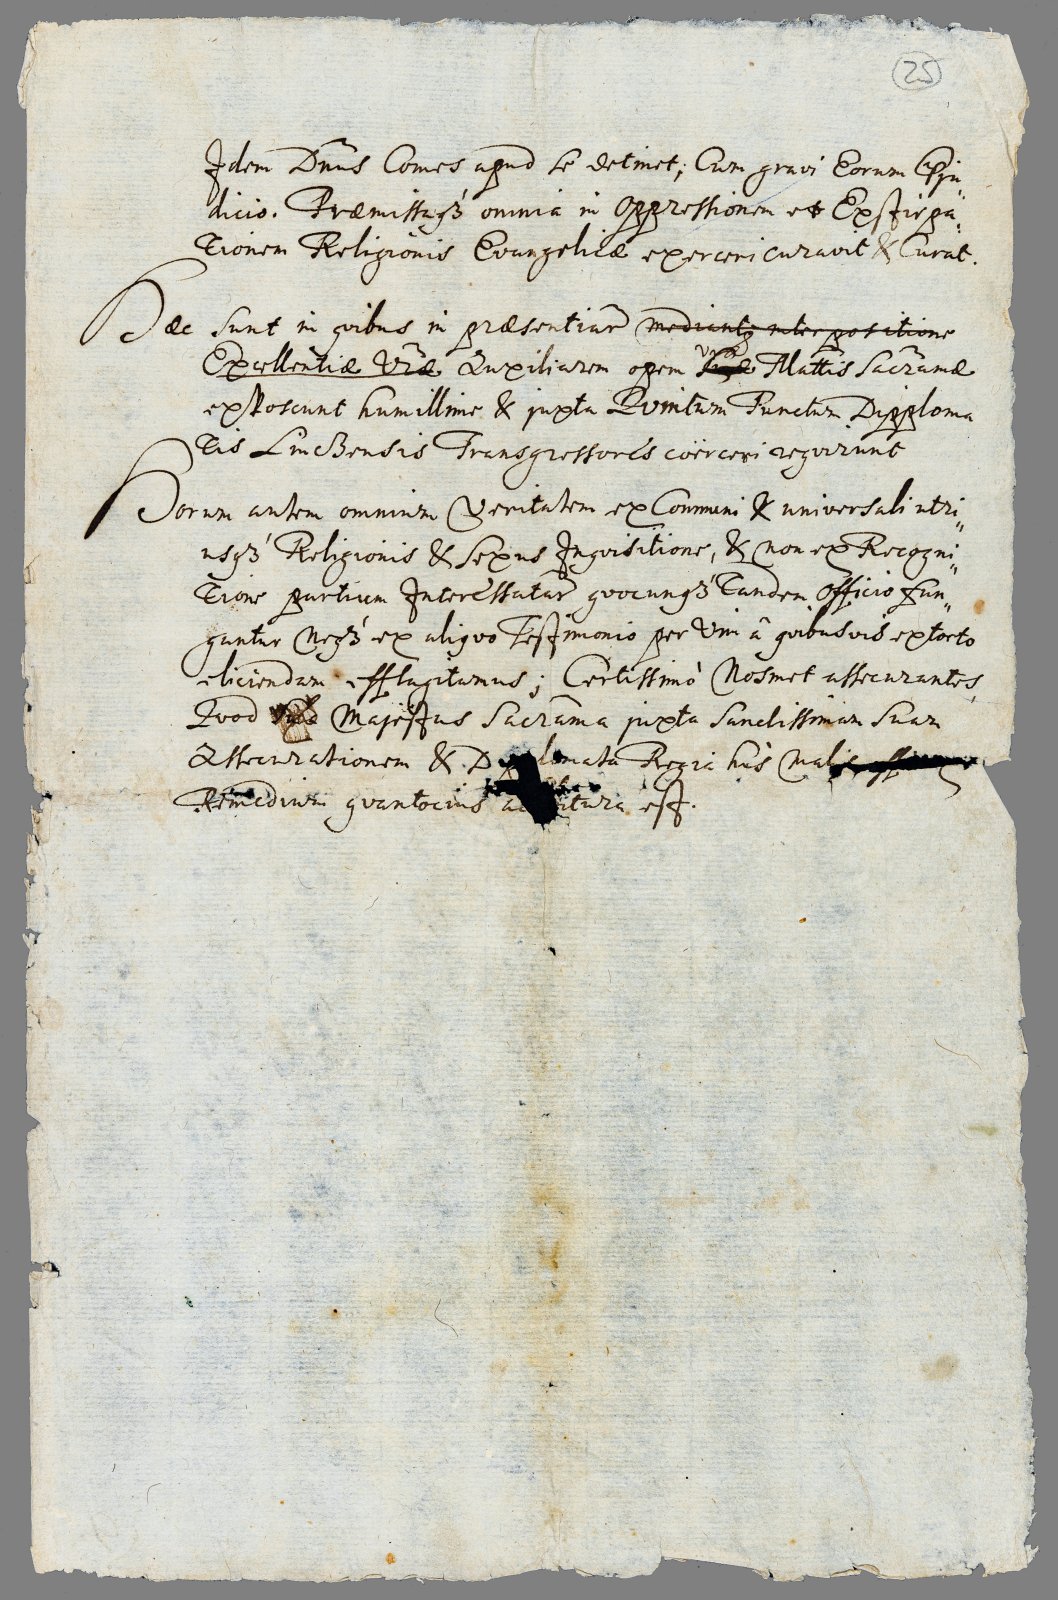 25
Idem Dnus Comes apud se detinet; Cum gravi Eorum Pju„
dicio. Præmissaqʒ omnia in Oppressionem et Exstirpa„
Tionem Religionis Evangelicæ exerceri curavit & Curat.
Hæc sunt in qvibus in præsentiar mediante interpositione
Excellentiæ Vræ Auxiliarem opem Vræ Mattis Sacramæ
exposcunt humillime & juxta Qvintum Punctum Dipploma
Tis Linczensis Transgressores coërceri reqvirunt
Horum autem omnium Veritatem ex Communi & universali utri„
usqʒ Religionis & Sexus Inqvisitione, & non ex Recogni„
Tione partium Interessatar qvocunqʒ Tandem Officio fun„
gantur Neqʒ ex aliqvo Testimonio per Vim â qvibusvis extorto
eliciendam efflagitamus; Certissimò Nosmet assecurantes,
Qvod Majestas Sacrama juxta Sanctissimam Suam
Assecurationem & Diplomata Regia his malis
Remedium qvantocius itura est.